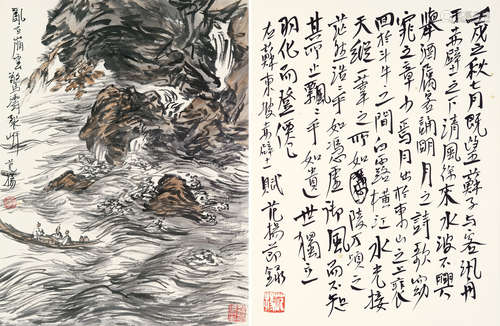 亂石崩雲驚濤裂岸 范揚
壬戌之秋七月既望蘇子与客汎舟
于赤壁之下清風徐来水波不興
舉酒属客誦明月之詩歌窈
窕之章少焉月出於東山之上裴
回於斗牛之間白露橫江水光接
天縱一葦之所如陵万頃之
茫然浩浩乎如憑虛御風而不知
其所止飄飄乎如遺世獨立
羽化而登僊
右蘇東坡赤壁賦 范揚節錄